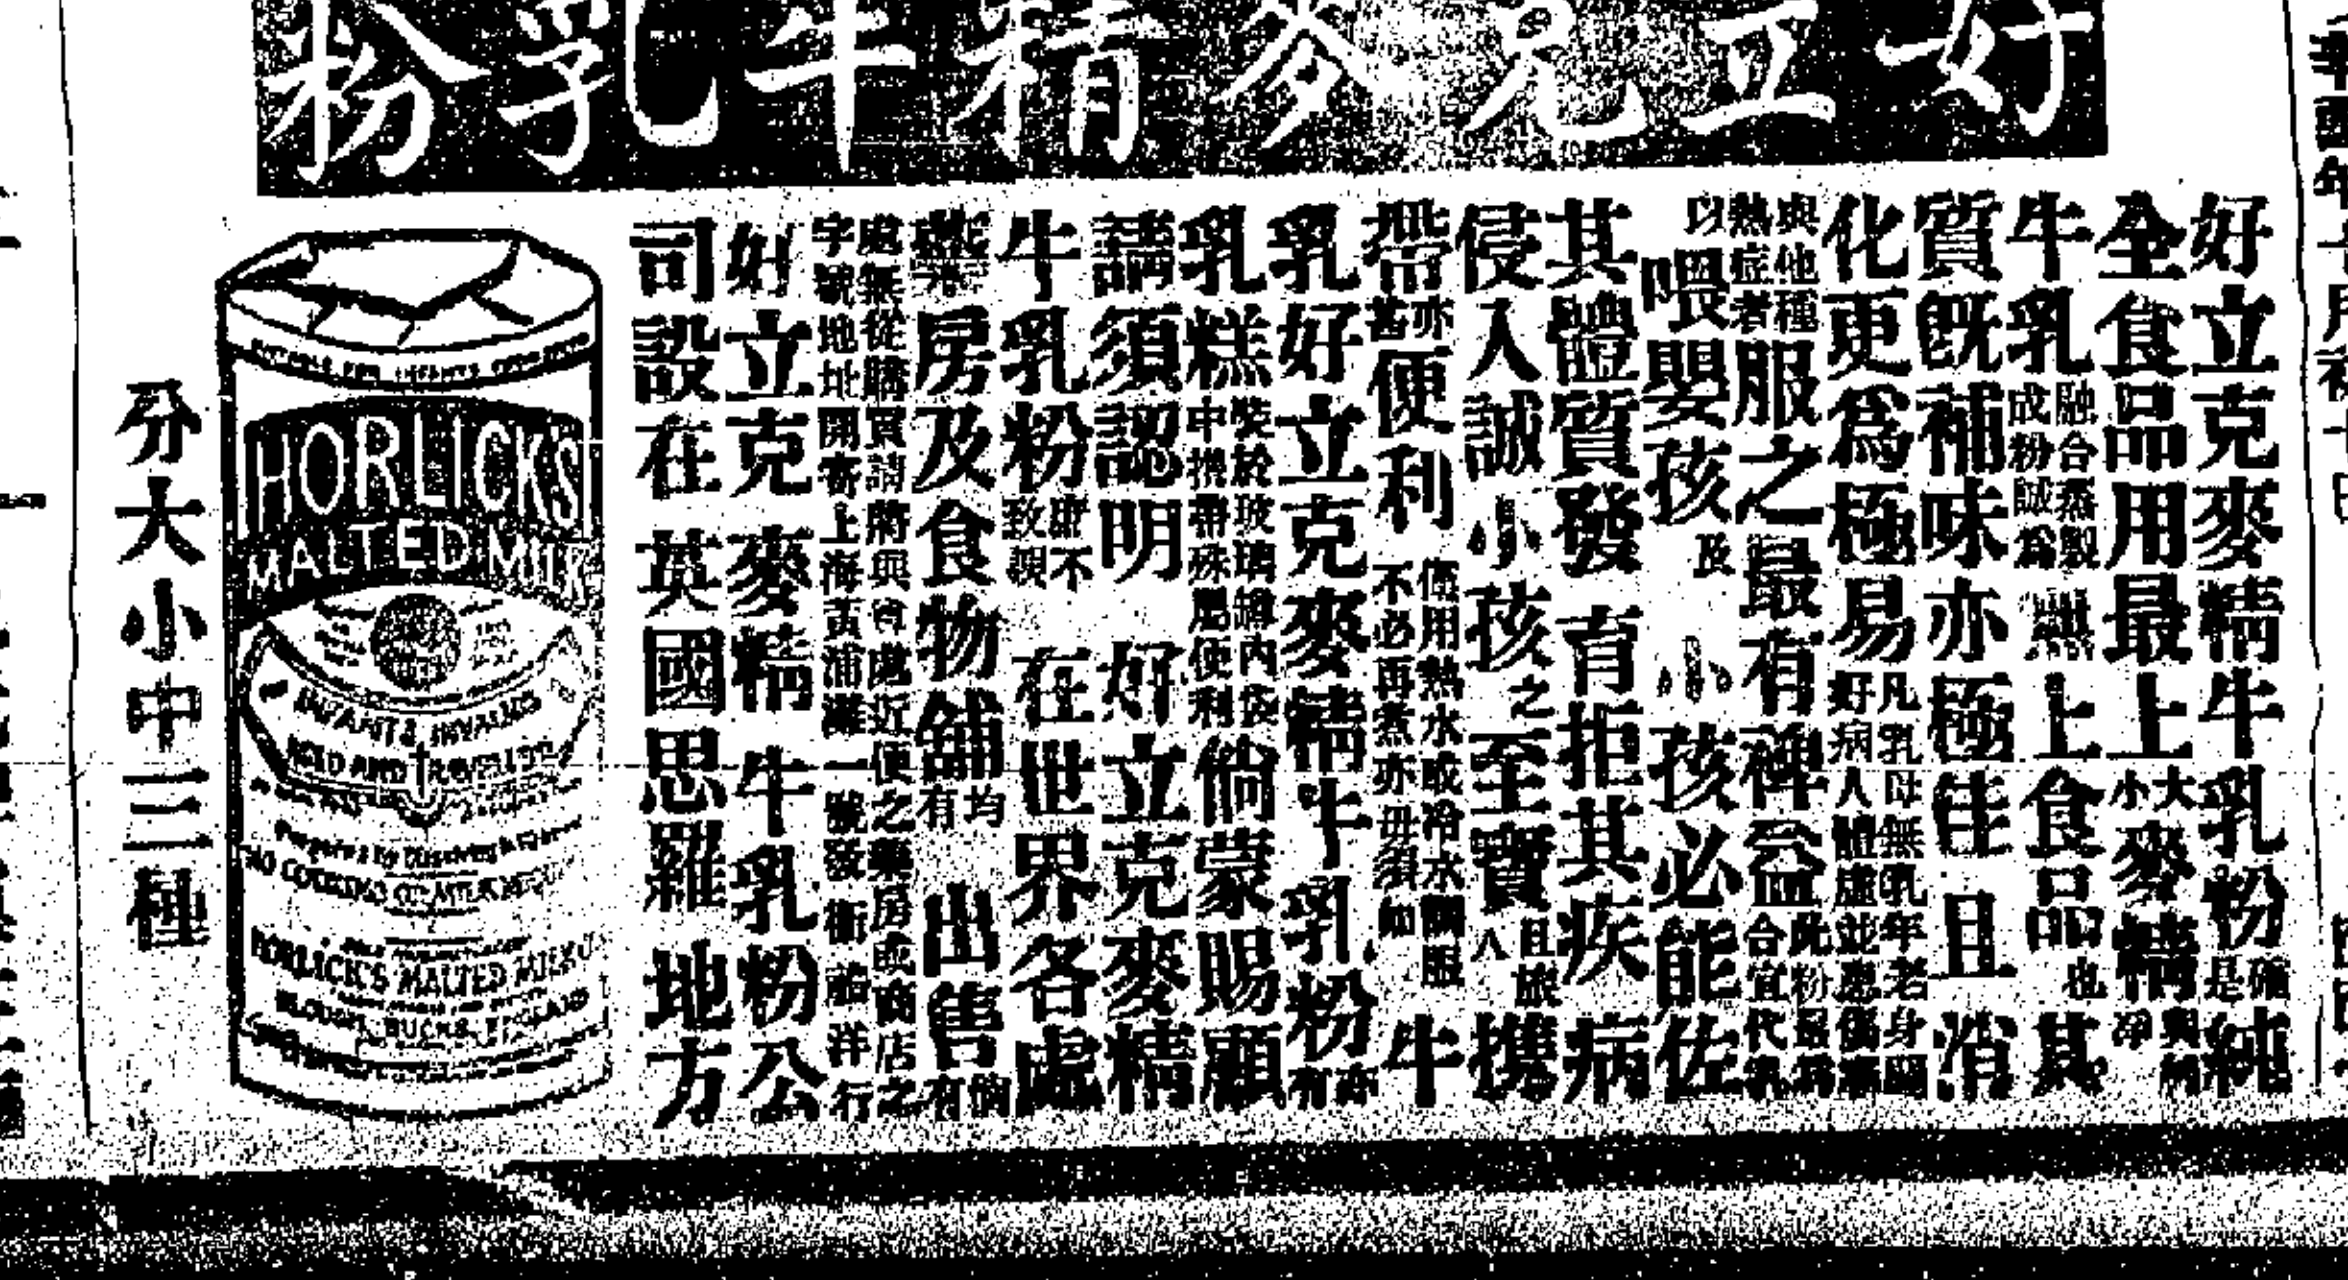 好立克麥精牛乳粉
好立克麥精牛乳粉確是純
全食品用最上大小麥精與淨
牛乳融合蒸製成粉誠為無上食品也其
質既補味亦極佳且消
化更為極易凡乳母無乳年老身弱好病人體虛並患傷
與他種熱症者服之最有裨益此粉最為合宜代乳
以喂嬰孩及小孩必能佐
其體質發育拒其疾病
侵入誠小孩之至寶且旅人攜
帶亦甚便利僅用熱水或冷水調服不必再煮亦毋須加牛
乳好立克麥精牛乳粉亦有
乳糕裝於玻璃罐內袋中攜帶殊屬便利倘蒙賜顧
請須認明好立克麥精
牛乳粉庶不致誤在世界各處
藥房及食物舖均有出售倘有
處無從購買請將與尊處近便之藥房或商店之
字號地址開寄上海黃浦灘一號發洋行
好立克麥精牛乳粉公
司設在英國思羅地方
分大小中三種
HORLICKS
MALTED MILK
INFANTS INVALIDS
AGED AND TRAVELLERS
HORLICK'S MALTED MILK CO.
SLOUGH, BUCKS, ENGLAND